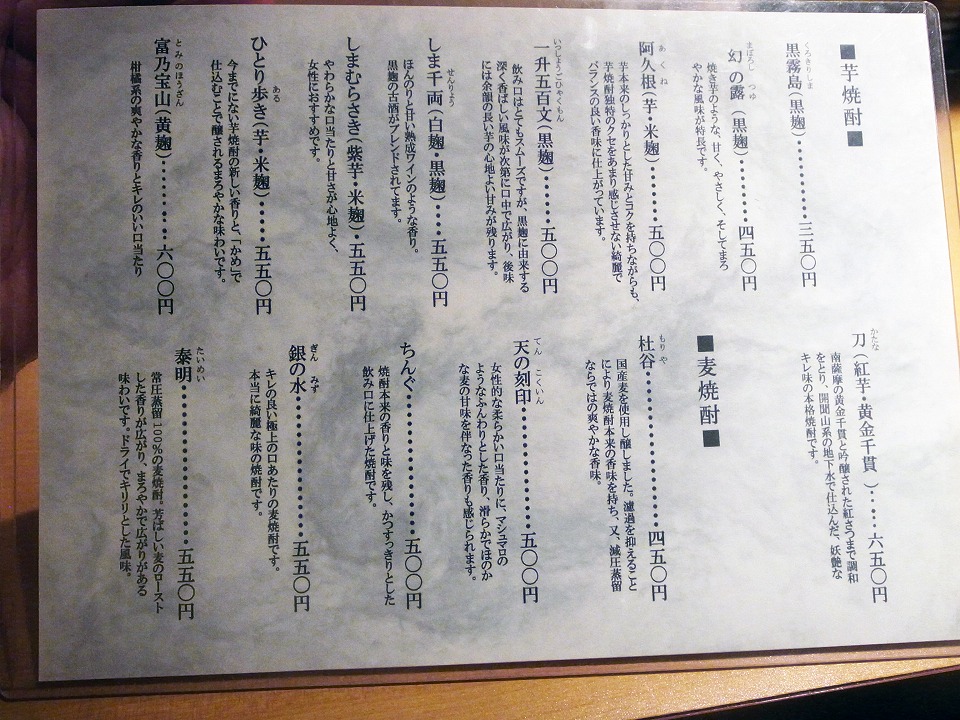 ■芋焼酎■
くろきりしま
黒霧島（黒麹）・・・・・・・・三五〇円
まぼろし つゆ
幻の露（黒麹）・・・・・・四五〇円
焼き芋のような、甘く、やさしく、そしてまろ
やかな風味が特長です。
あくね
阿久根（芋・米麹）・・・・・・五〇〇円
芋本来のしっかりとした甘みとコクを持ちながらも、
芋焼酎独特のクセをあまり感じさせない綺麗で
バランスの良い香味に仕上がっています。
いっしょうごひゃくもん
一升五百文（黒麹）・・・・・・五〇〇円
飲み口はとてもスムーズですが、黒麹に由来する
深く香ばしい風味が次第に口中で広がり、後味
には余韻の長い芋の心地よい甘みが残ります。
せんりょう
しま千両（白麹・黒麹）・・・・五五〇円
ほんのりと甘い熟成ワインのような香り。
黒麹の古酒がブレンドされてます。
しまむらさき（紫芋・米麹）・五五〇円
やわらかな口当たりと甘さが心地よく、
女性におすすめです。
ある
ひとり歩き（芋・米麹）・・・・・五五〇円
今までにない芋焼酎の新しい香りと、「かめ」で
仕込むことで醸されるまろやかな味わいです。
とみのほうざん
富乃宝山（黄麹）・・・・・・・・六〇〇円
柑橘系の爽やかな香りとキレのいい口当たり
かたな
刀（紅芋・黄金千貫）・・・・・六五〇円
南薩摩の黄金千貫と吟醸された紅さつまで調和
をとり、開聞山系の地下水で仕込んだ、妖艶な
キレ味の本格焼酎です。
■麦焼酎■
もりや
杜谷・・・・・・・・・・・・・・・四五〇円
国産麦を使用し醸しました。濾過を抑えること
により麦焼酎本来の香味を持ち、又、減圧蒸留
ならではの爽やかな香味。
てん こくいん
天の刻印・・・・・・・・・・・・五〇〇円
女性的な柔らかい口当たりに、マシュマロの
ようなふんわりとした香り、滑らかでほのか
な麦の甘味を伴なった香りも感じられます。
ちんぐ・・・・・・・・・・・・・・五〇〇円
焼酎本来の香りと味を残し、かつすっきりとした
飲み口に仕上げた焼酎です。
ぎん みず
銀の水・・・・・・・・・・・・・・五五〇円
キレの良い極上の口あたりの麦焼酎です。
本当に綺麗な味の焼酎です。
たいめい
泰明・・・・・・・・・・・・・・・五五〇円
常圧蒸留100%の麦焼酎。芳ばしい麦のロースト
した香りが広がり、まろやかで広がりがある
味わいです。ドライでキリリとした風味。